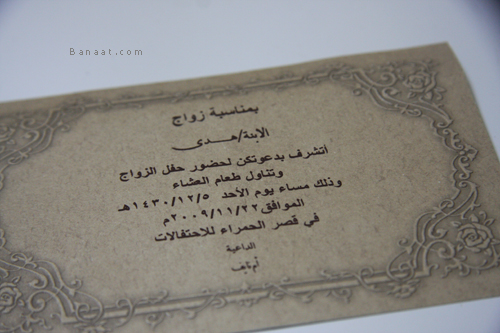 Banaat.com
بمناسبة زواج
الابنة/هدى
أتشرف بدعوتكن لحضور حفل الزواج
وتناول طعام العشاء
وذلك مساء يوم الأحد ١٤٣٠/١٢/٥هـ
الموافق٢٠٠٩/١١/٢٢م
في قصر الحمراء للاحتفالات
الداعية
أم نايف